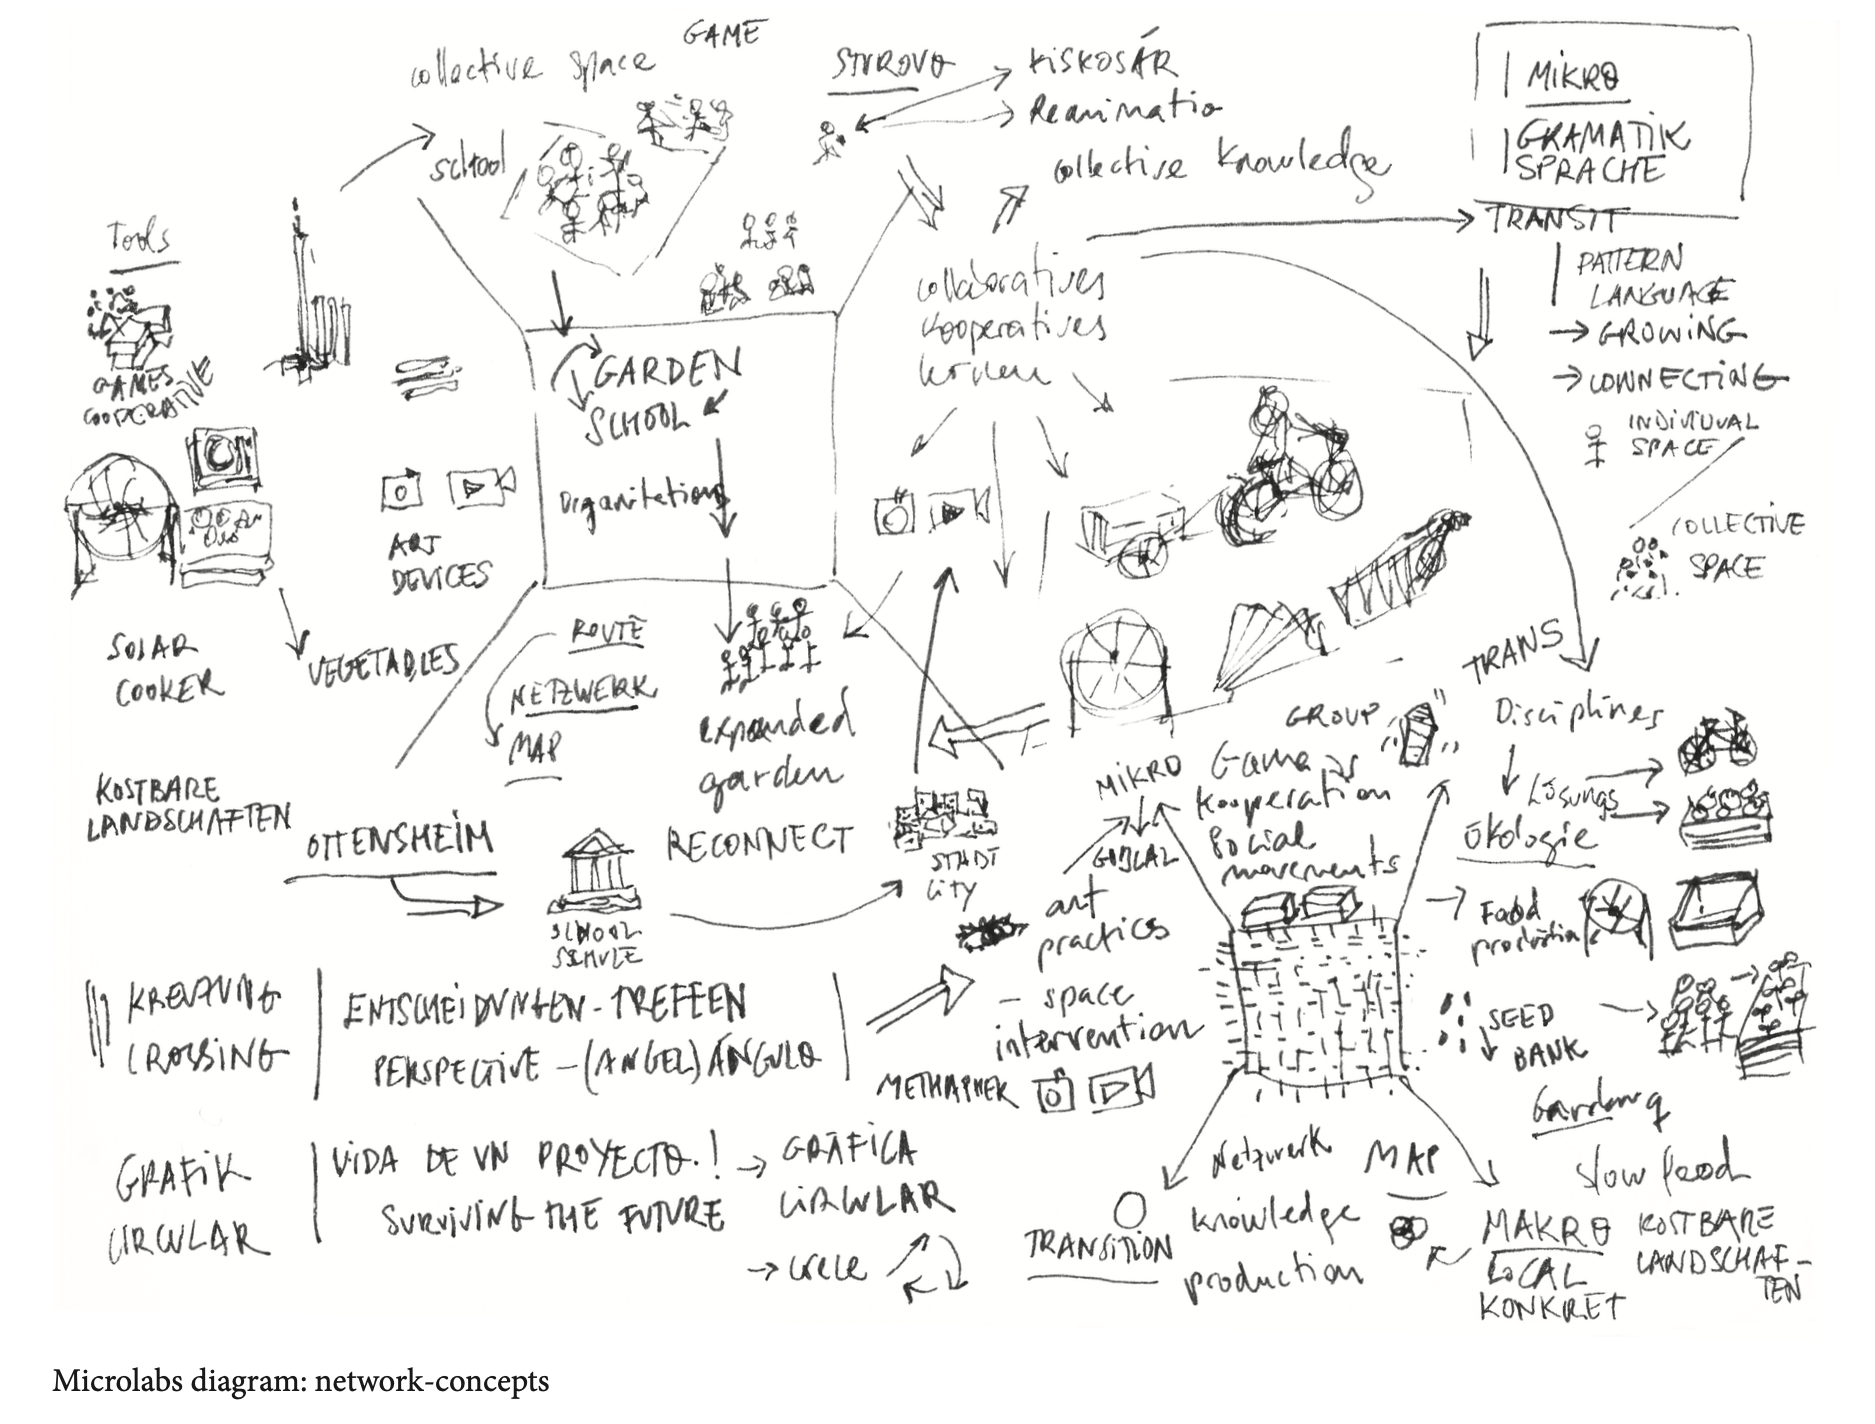 GAME
collective space
school
STUROVO
KISKOSÁR
Reanimatio
collective knowledge
MIKRO
GRAMATIK
SPRACHE
TRANSIT
PATTERN
LANGUAGE
→ GROWING
→ CONNECTING
INDIVIDUAL
SPACE
COLLECTIVE
SPACE
Tools
GAMES
COOPERATIVE
SOLAR
COOKER
VEGETABLES
ART
DEVICES
GARDEN
SCHOOL
collaboratives
kooperatives
ROUTE
NETZWERK
MAP
expanded
garden
KOSTBARE
LANDSCHAFTEN
OTTENSHEIM
SCHOOL
SCHULE
RECONNECT
STADT
City
TRANS
Disciplines
Lösungs
Ökologie
GROUP
MIKRO
Game
Kooperation
Social
movements
art
practics
- space
intervention
METHAPHER
Food
production
SEED
BANK
slow food
KREUZUNG
CROSSING
ENTSCHEIDUNGEN-TREFFEN
PERSPECTIVE - (ANGEL) ÁNGULO
GRAFIK
CIRCULAR
VIDA DE UN PROYECTO.!
SURVIVING THE FUTURE
→ GRÁFICA
CIRCULAR
TRANSITION
Netzwerk
knowledge
production
MAP
MAKRO
LOCAL
KONKRET
KOSTBARE
LANDSCHAF-
TEN
Microlabs diagram: network-concepts